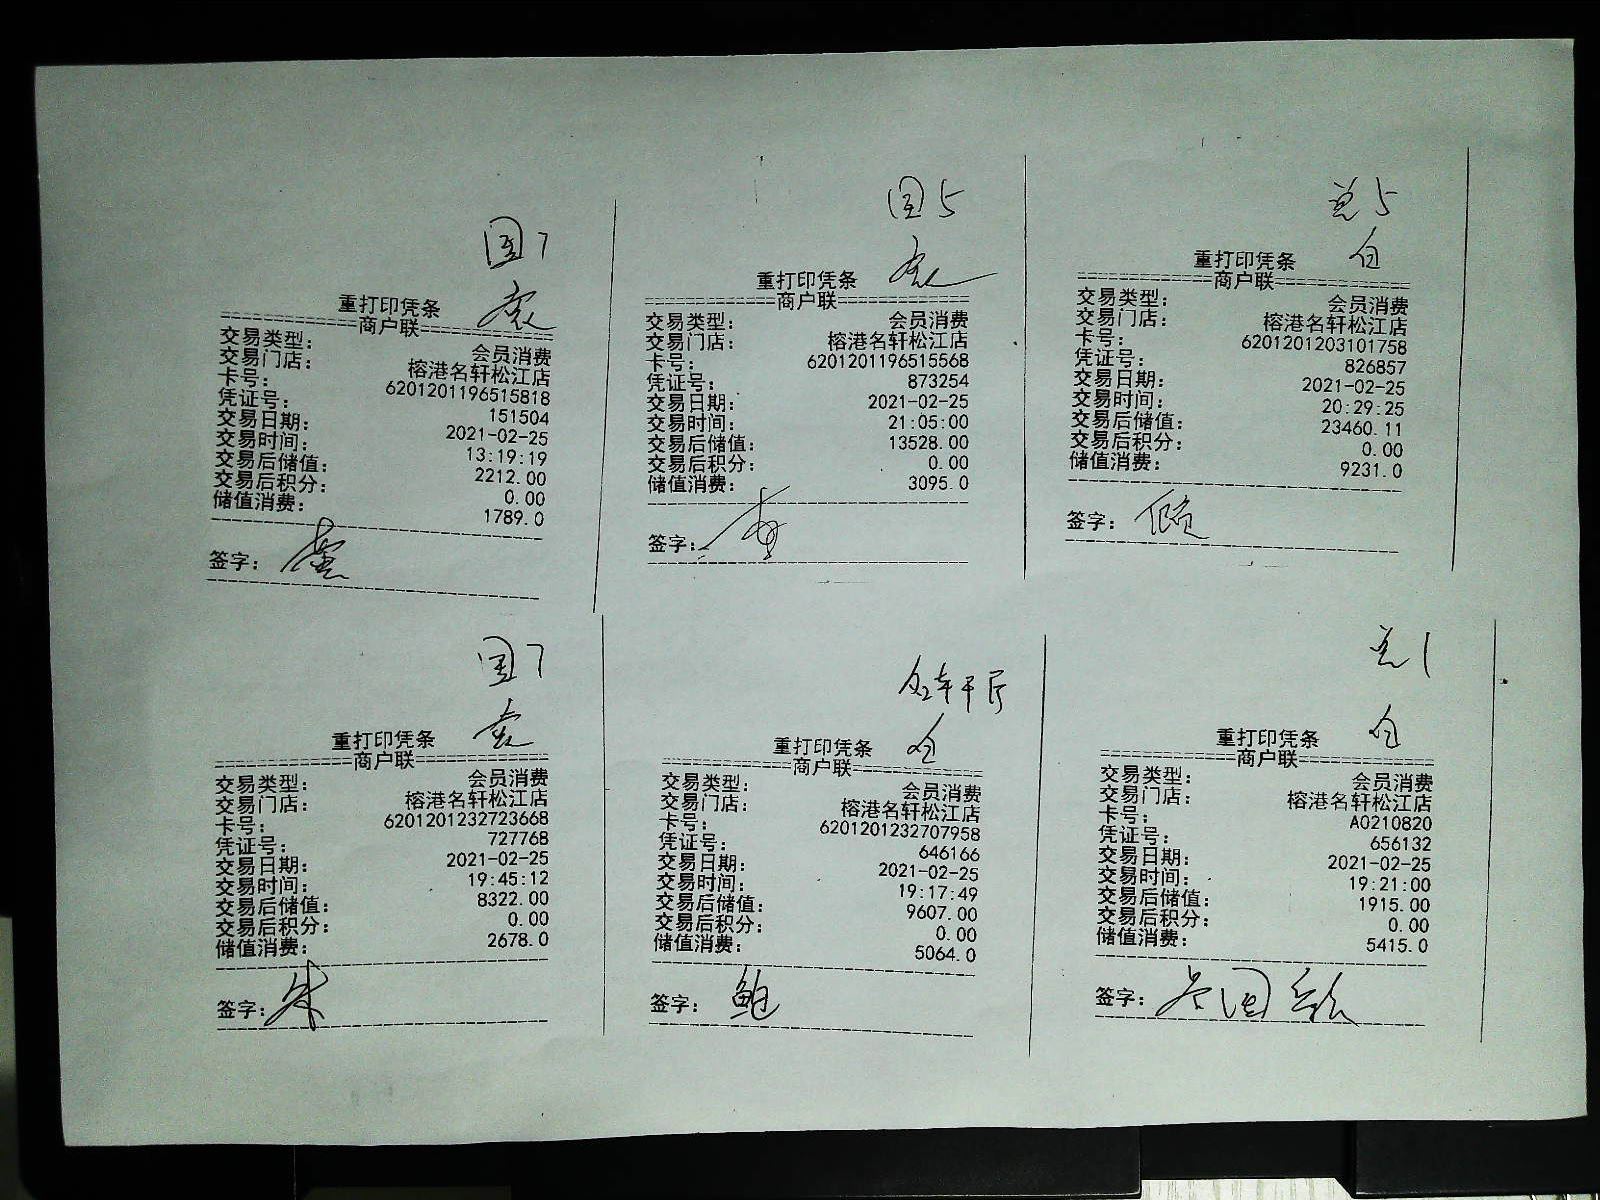 国7
重打印凭条
商户联
交易类型: 会员消费
交易门店: 榕港名轩松江店
卡号: 6201201196515818
凭证号: 151504
交易日期: 2021-02-25
交易时间: 13:19:19
交易后储值: 2212.00
交易后积分: 0.00
储值消费: 1789.0
签字:
国5
重打印凭条
商户联
交易类型: 会员消费
交易门店: 榕港名轩松江店
卡号: 6201201196515568
凭证号: 873254
交易日期: 2021-02-25
交易时间: 21:05:00
交易后储值: 13528.00
交易后积分: 0.00
储值消费: 3095.0
签字:
5
重打印凭条
商户联
交易类型: 会员消费
交易门店: 榕港名轩松江店
卡号: 6201201203101758
凭证号: 826857
交易日期: 2021-02-25
交易时间: 20:29:25
交易后储值: 23460.11
交易后积分: 0.00
储值消费: 9231.0
签字:
国7
重打印凭条
商户联
交易类型: 会员消费
交易门店: 榕港名轩松江店
卡号: 6201201232723668
凭证号: 727768
交易日期: 2021-02-25
交易时间: 19:45:12
交易后储值: 8322.00
交易后积分: 0.00
储值消费: 2678.0
签字: 朱
重打印凭条
商户联
交易类型: 会员消费
交易门店: 榕港名轩松江店
卡号: 6201201232707958
凭证号: 646166
交易日期: 2021-02-25
交易时间: 19:17:49
交易后储值: 9607.00
交易后积分: 0.00
储值消费: 5064.0
签字: 鲍
1
重打印凭条
商户联
交易类型: 会员消费
交易门店: 榕港名轩松江店
卡号: A0210820
凭证号: 656132
交易日期: 2021-02-25
交易时间: 19:21:00
交易后储值: 1915.00
交易后积分: 0.00
储值消费: 5415.0
签字: